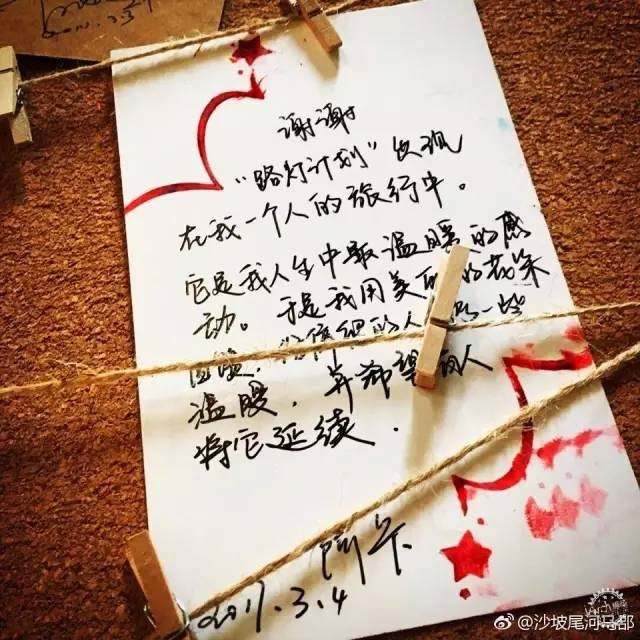 谢谢
“路灯计划”出现
在我一个人的旅行中。
它是我人生中最温暖的感
动。于是我用美丽的花朵
回馈,的人一些
温暖,并希望有人
将它延续.
2017.3.4
@沙坡尾河马郡